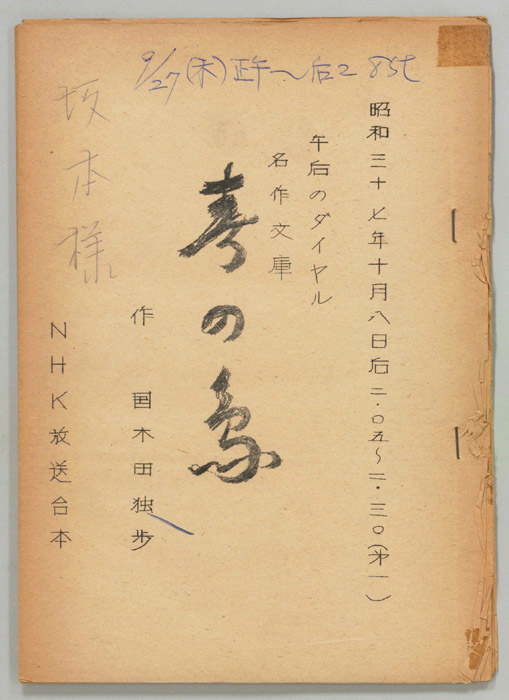 9/27(木)正午〜后2 85st
昭和三十七年十月八日后二・〇五〜二・三〇(才一)
午后のダイヤル
名作文庫
春の鳥
作 国木田独歩
NHK放送台本
坂本様